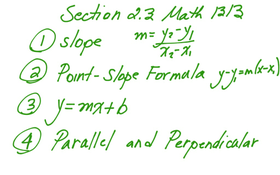 Section 2.3 Math 1313
① slope m = y₂-y₁ / x₂-x₁
② Point-Slope Formula y-y₁=m(x-x₁
③ y=mx+b
④ Parallel and Perpendicular